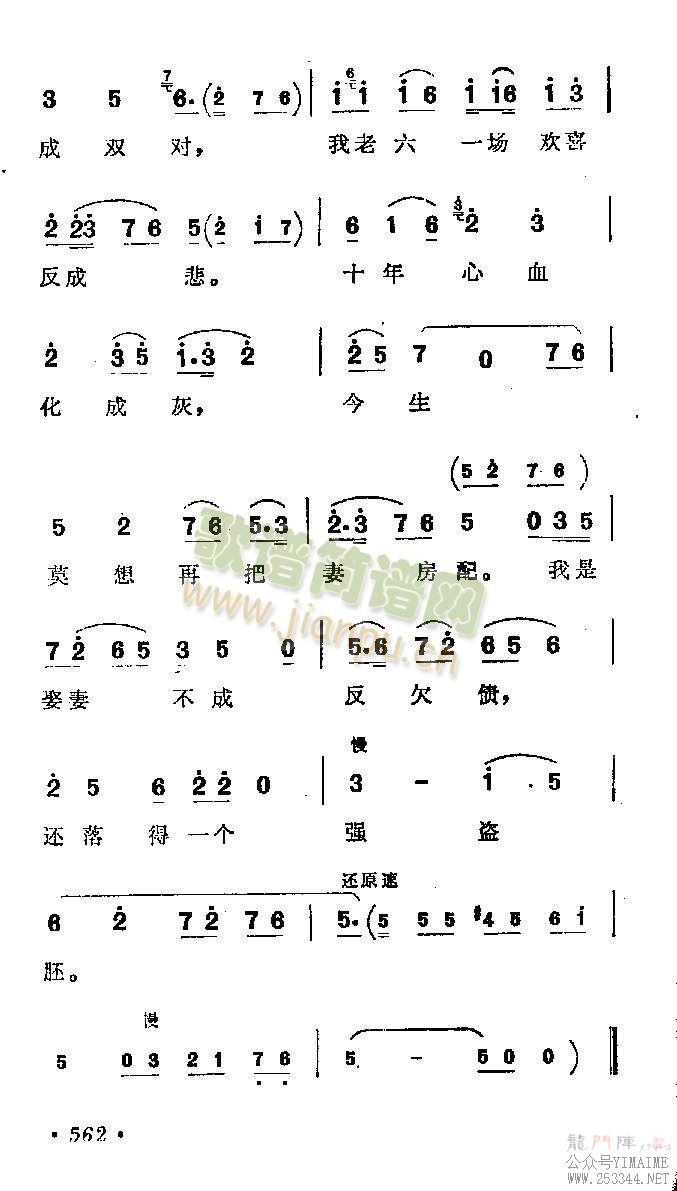 3 5 6. (2 7 6) | i i i 6 i i6 i 3 |
成 双 对, 我老六 一场 欢喜
2 23 7 6 5 (2 i 7) | 6 1 6 2 3 |
反成 悲。 十年 心血
2 3 5 i.3 2 | 2 5 7 0 7 6 |
化 成 灰, 今 生
(5 2 7 6)
5 2 7 6 5.3 | 2.3 7 6 5 0 3 5 |
莫 想 再 把 妻 房 配。 我是
7 2 6 5 3 5 0 | 5.6 7 2 6 5 6 |
娶妻 不 成 反 欠 债,
慢
2 5 6 2 2 0 | 3 - i . 5 |
还 落 得 一 个 强 盗
还原速
6 2 7 2 7 6 | 5. (5 5 5 #4 5 6 i |
胚。
慢
5 0 3 2 1 7 6 | 5 - 5 0 0 0 ) ‖
· 562 ·
歌谱简谱网
www.jianpu.cn
龍門陣
公众号YIMAIME
www.253344.NET